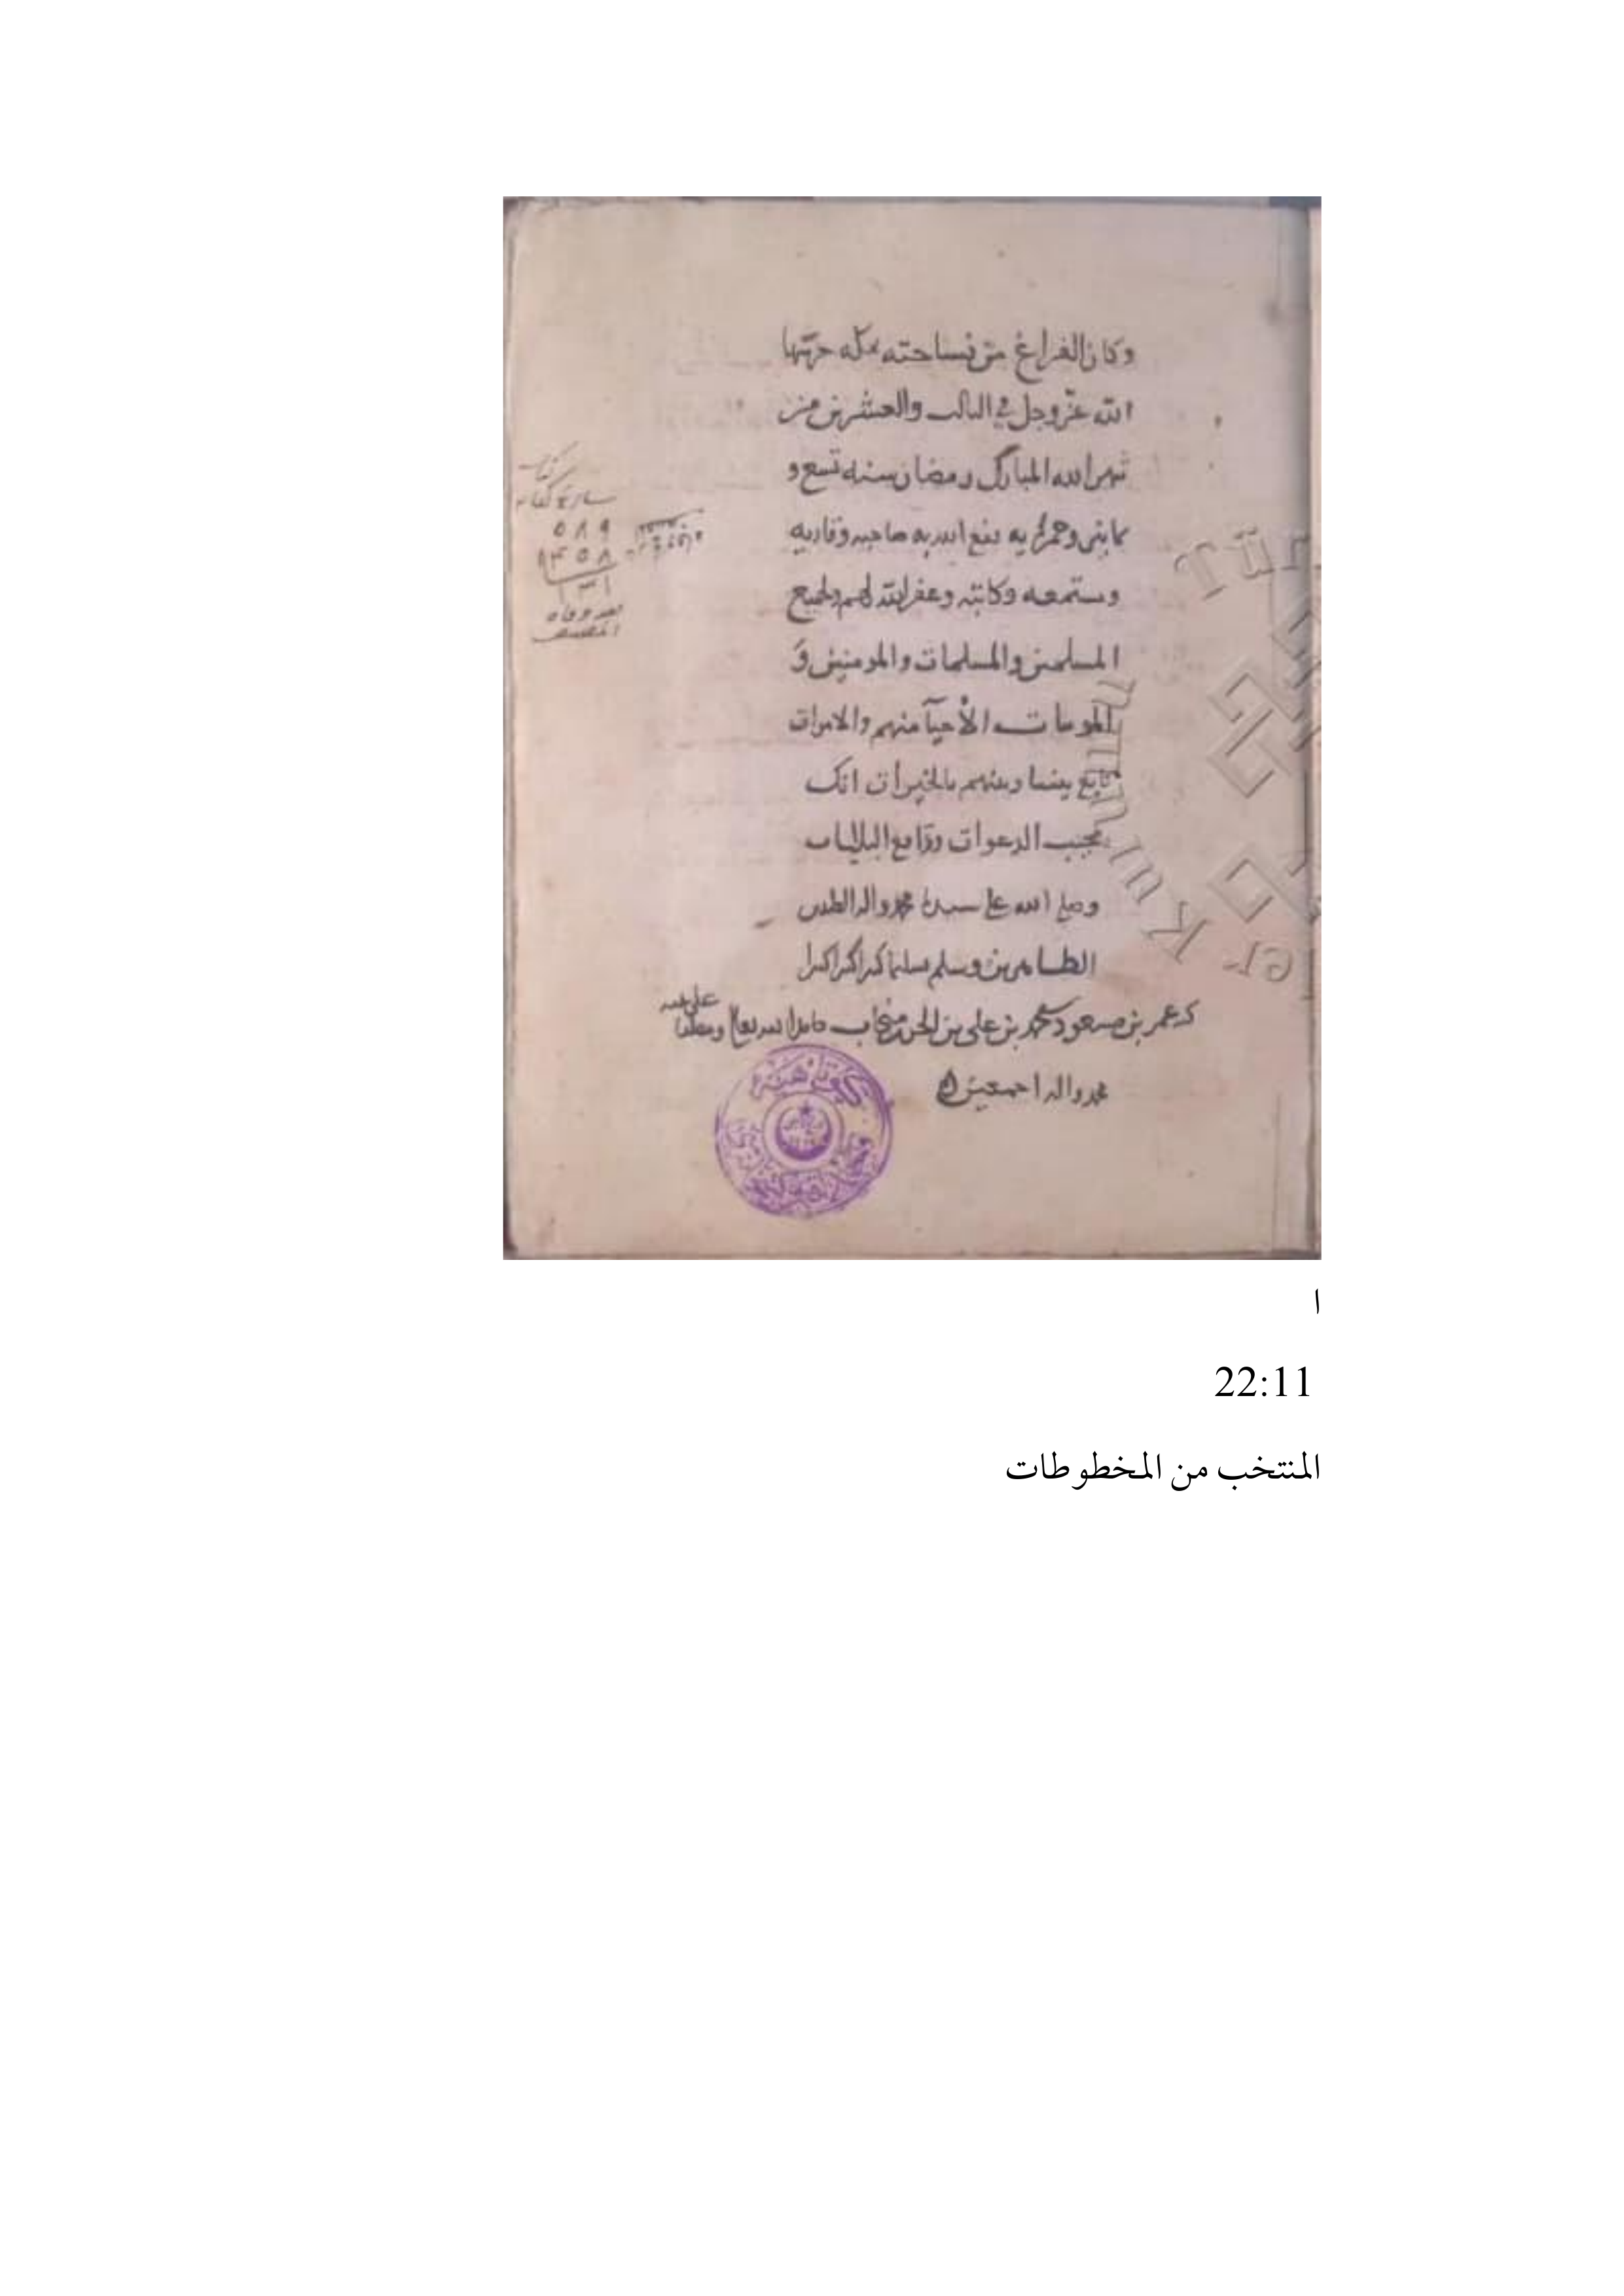 وكان الفراغ من نساخته بمكه حرسها
الله عز وجل في الثالث والعشرين من
شهر الله المبارك رمضان سنه تسع و
ثمانين وخمس مايه نفع الله به صاحبه وقاريه
ومستمعه وكاتبه وغفر الله لهم ولجميع
المسلمين والمسلمات والمومنين و
المومنات الأحيآ منهم والاموات
تابع بيننا وبينهم بالخيرات انك
مجيب الدعوات ودافع البليات
وصلى الله على سيدنا محمد واله الطيبين
الطاهرين وسلم تسليما كثيرا كثيرا كثيرا
عمر بن مسعود بن محمد بن علي بن حامدا لله تعالى ومصليا على نبيه
محمد واله اجمعين
كتاب
تاريخ كتابه
٥٨٩
٤٥٨
١٣١
بعد وفاة
المصنف
ا
22:11
المنتخب من المخطوطات